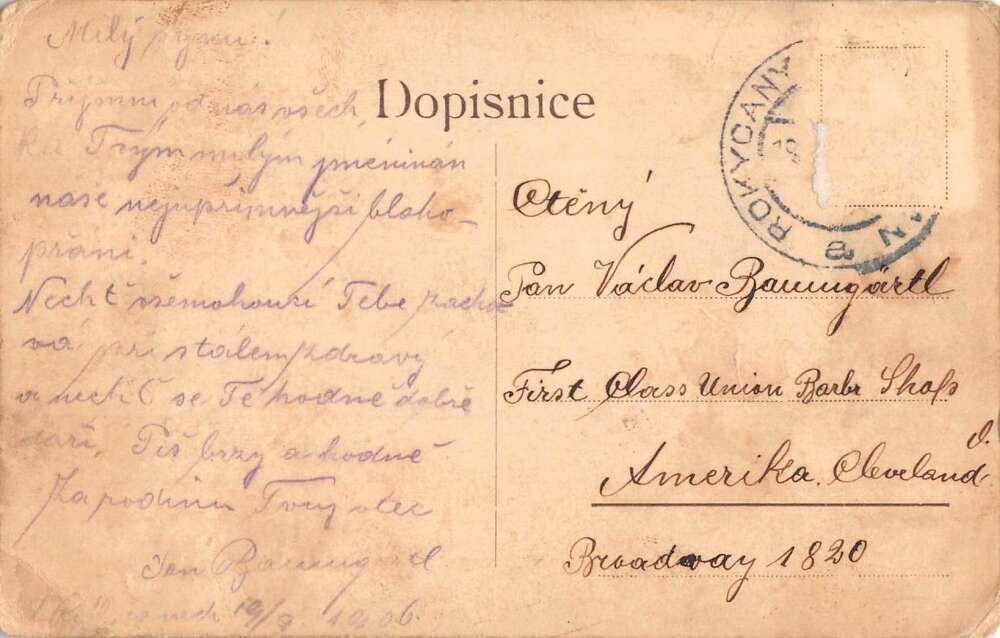 Dopisnice
ROKYCANY
Milý synu!
Přijmni od nás všech
Tvým milým jmeninán
naše nejupřímnější blaho-
přání.
Nechť všemohoucí Tebe zacho
vá při stálém zdravý
a nechť se Tě hodně dobře
daří. Piš brzy a hodně
Za rodinu Tvuj otec
Jan Baumgärtl
19/9 1906
Ctěný
Pan Václav Baumgärtl
First Class Union Barbr Shops
Amerika. Cleveland O.
Broadway 1820